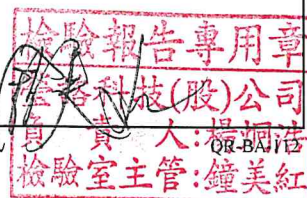 檢驗報告專用章
科技(股)公司
負責人:楊
QR-BA
檢驗室主管:鐘美紅